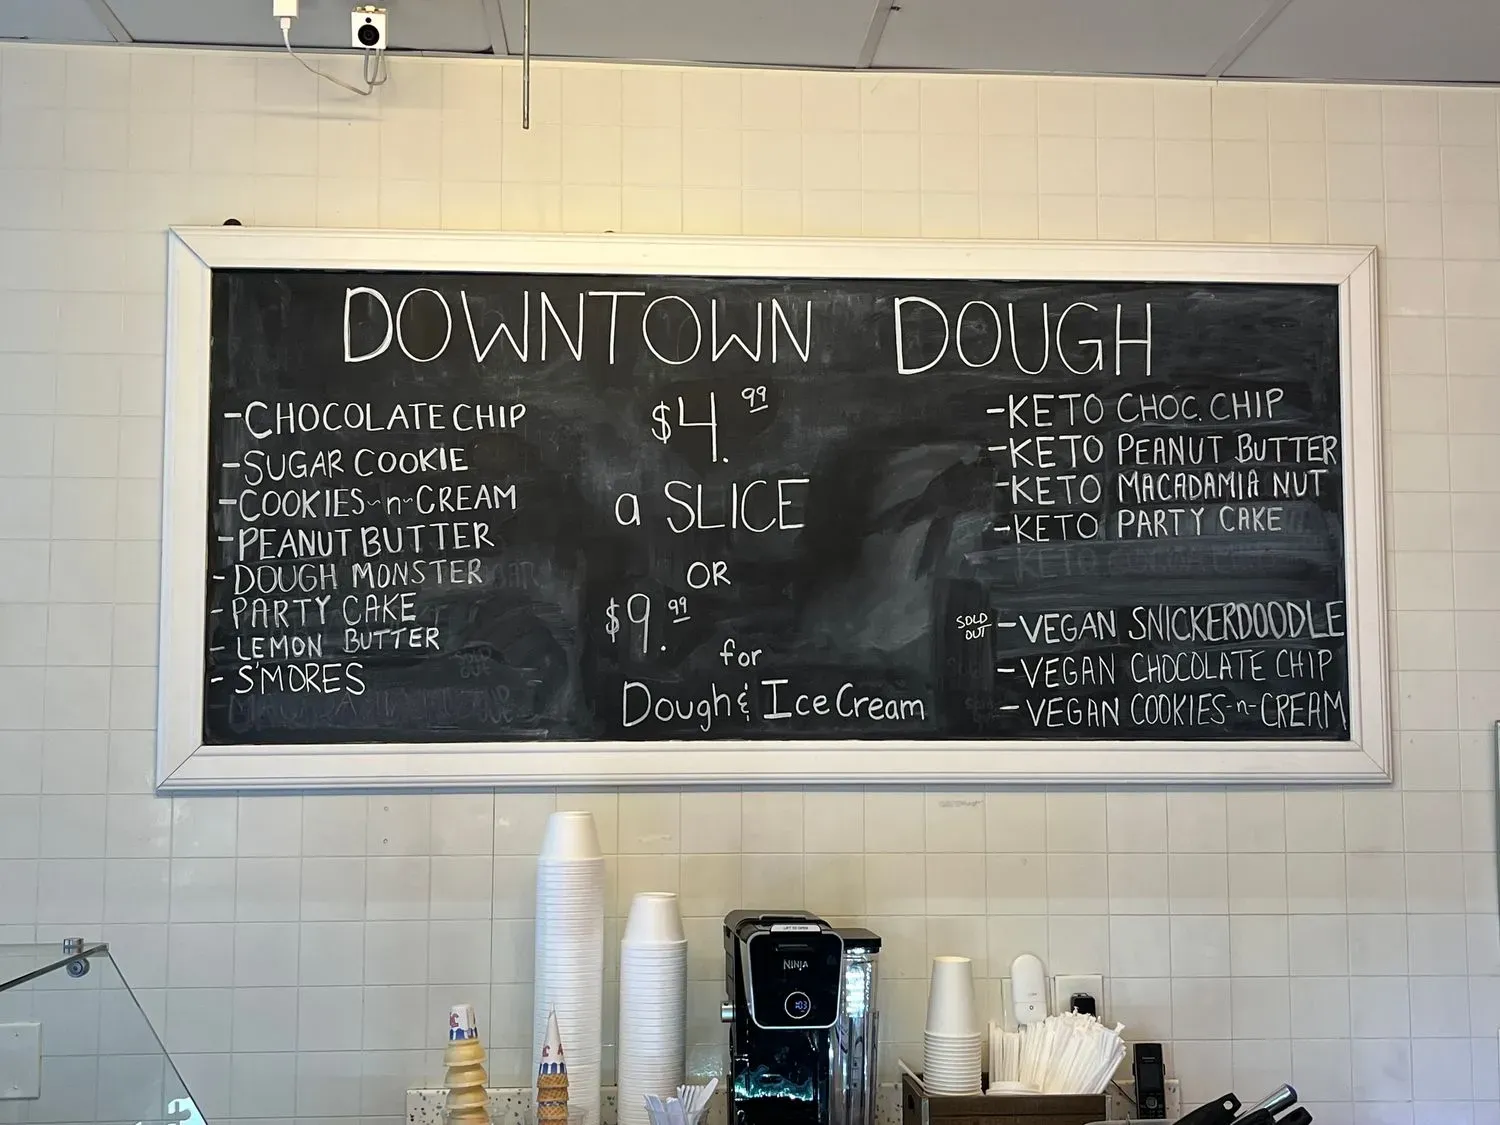 DOWNTOWN DOUGH
-CHOCOLATE CHIP
-SUGAR COOKIE
-COOKIES-n-CREAM
-PEANUT BUTTER
-DOUGH MONSTER
-PARTY CAKE
-LEMON BUTTER
-S'MORES
$4.99
a SLICE
OR
$9.99
for
Dough & Ice Cream
-KETO CHOC. CHIP
-KETO PEANUT BUTTER
-KETO MACADAMIA NUT
-KETO PARTY CAKE
SOLD OUT -VEGAN SNICKERDOODLE
-VEGAN CHOCOLATE CHIP
-VEGAN COOKIES-n-CREAM
LIFT TO OPEN
NINJA